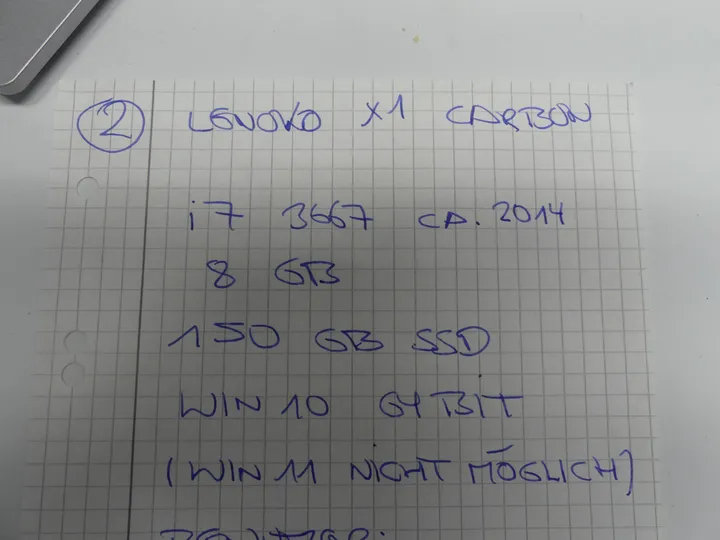 ② LENOVO X1 CARBON
i7 3667 CA. 2014
8 GB
150 GB SSD
WIN 10 64 BIT
(WIN 11 NICHT MÖGLICH)